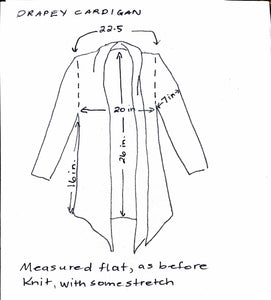 DRAPEY CARDIGAN
22.5
7in
20 in
26 in.
16in.
Measured flat, as before
Knit, with some stretch